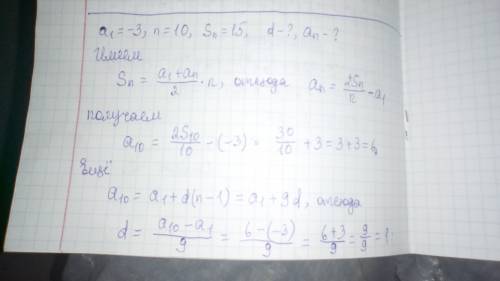 a₁=-3, n=10, Sₙ=15, d-?, aₙ-?
Имеем
Sₙ = (a₁+aₙ)/2 · n, отсюда aₙ = 2Sₙ/n - a₁
получаем
a₁₀ = 2S₁₀/10 - (-3) = 30/10 + 3 = 3+3 = 6,
Ещё
a₁₀ = a₁+d(n-1) = a₁+9d, отсюда
d = (a₁₀-a₁)/9 = (6-(-3))/9 = (6+3)/9 = 9/9 = 1.